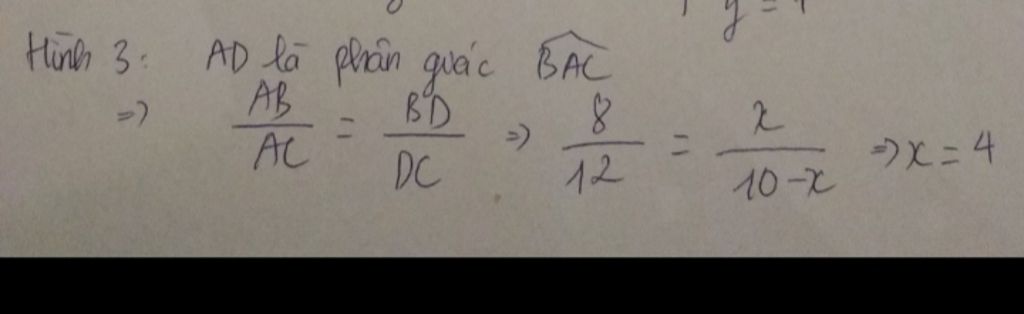 y = 1
Hình 3: AD là phân giác \widehat{BAC}
=> AB/AC = BD/DC => 8/12 = x/10-x => x = 4